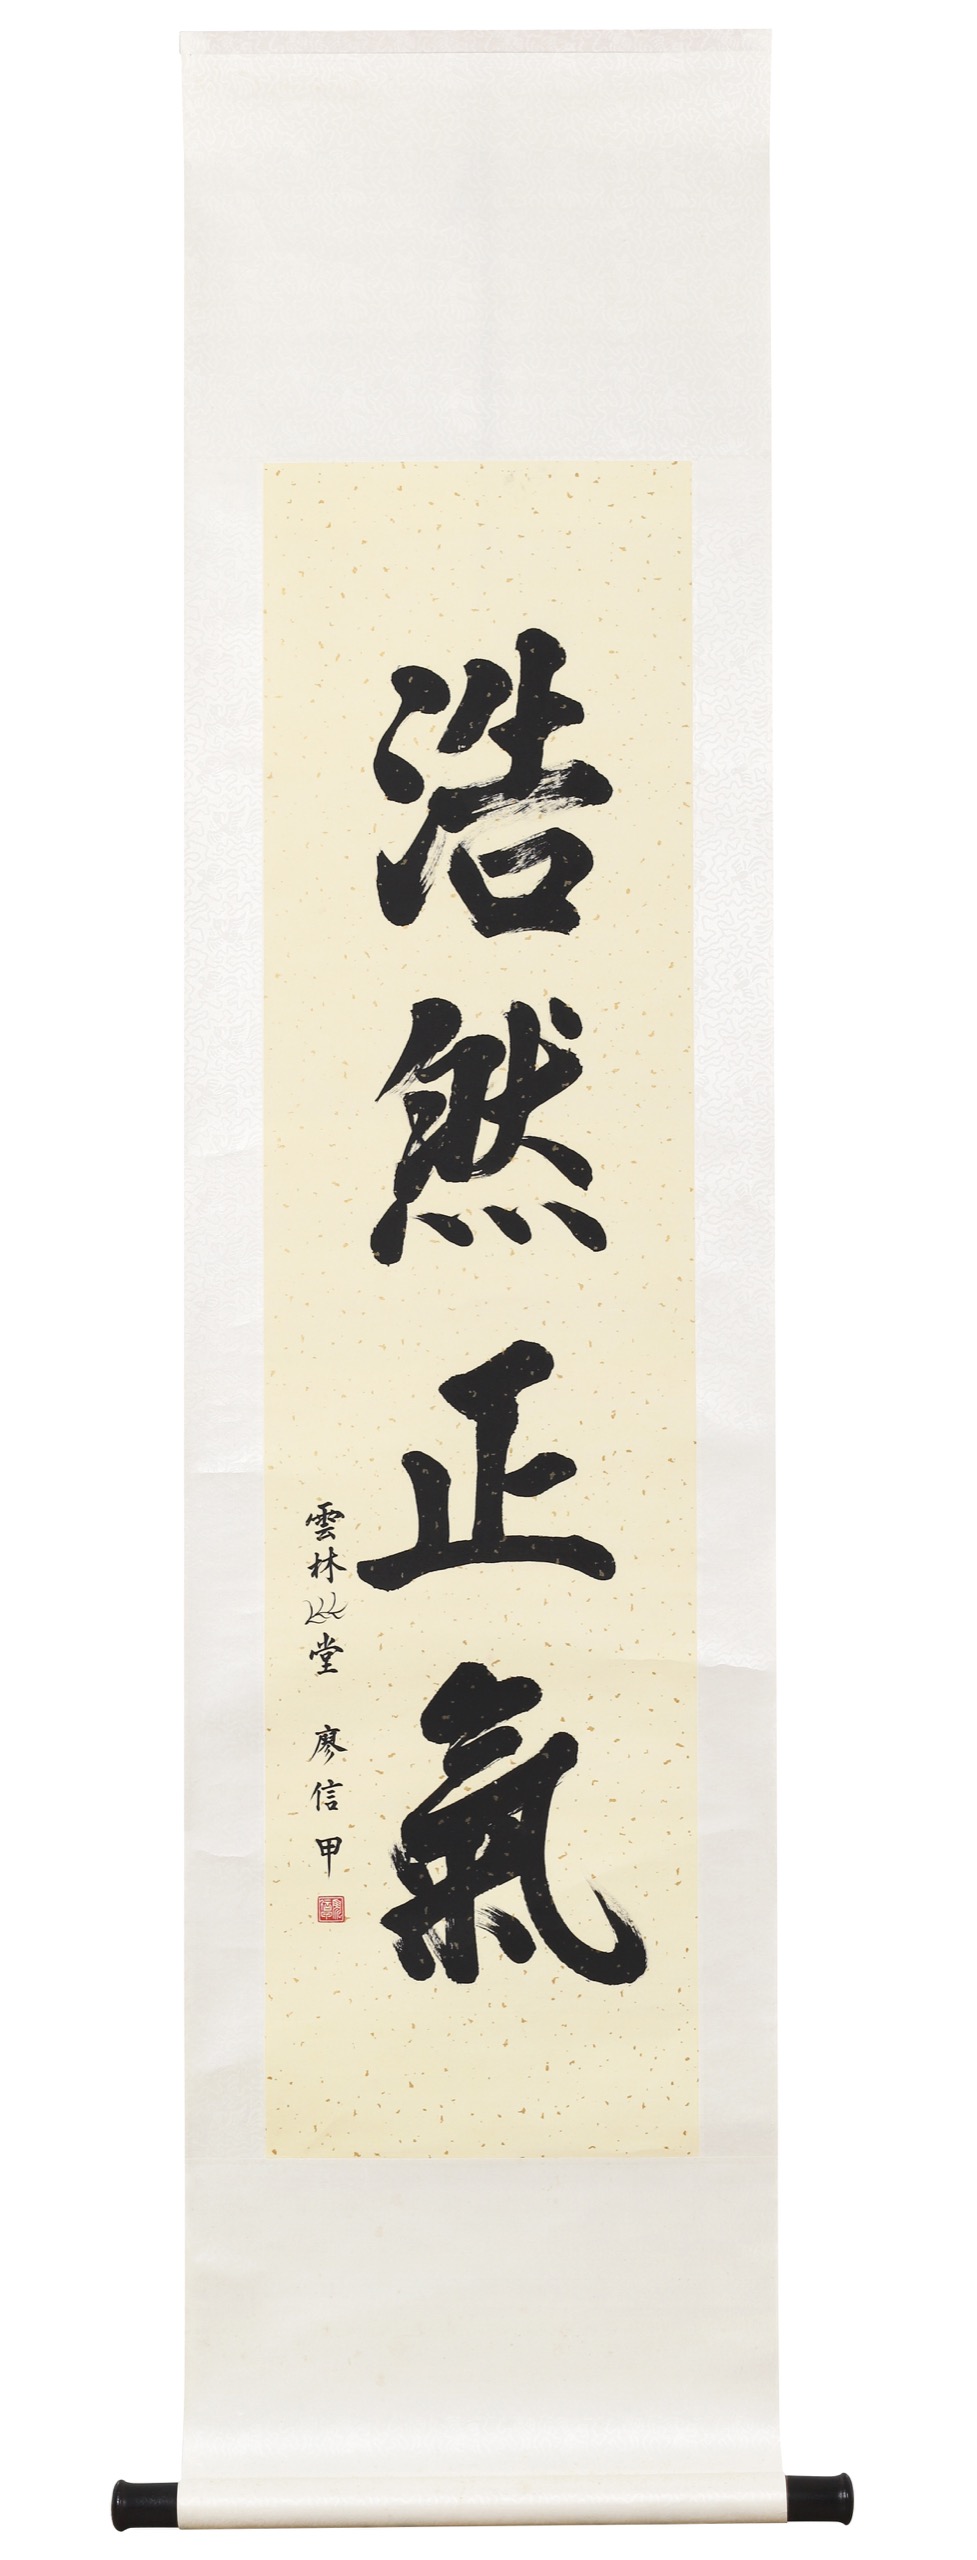 浩然正氣
雲林堂 廖信甲